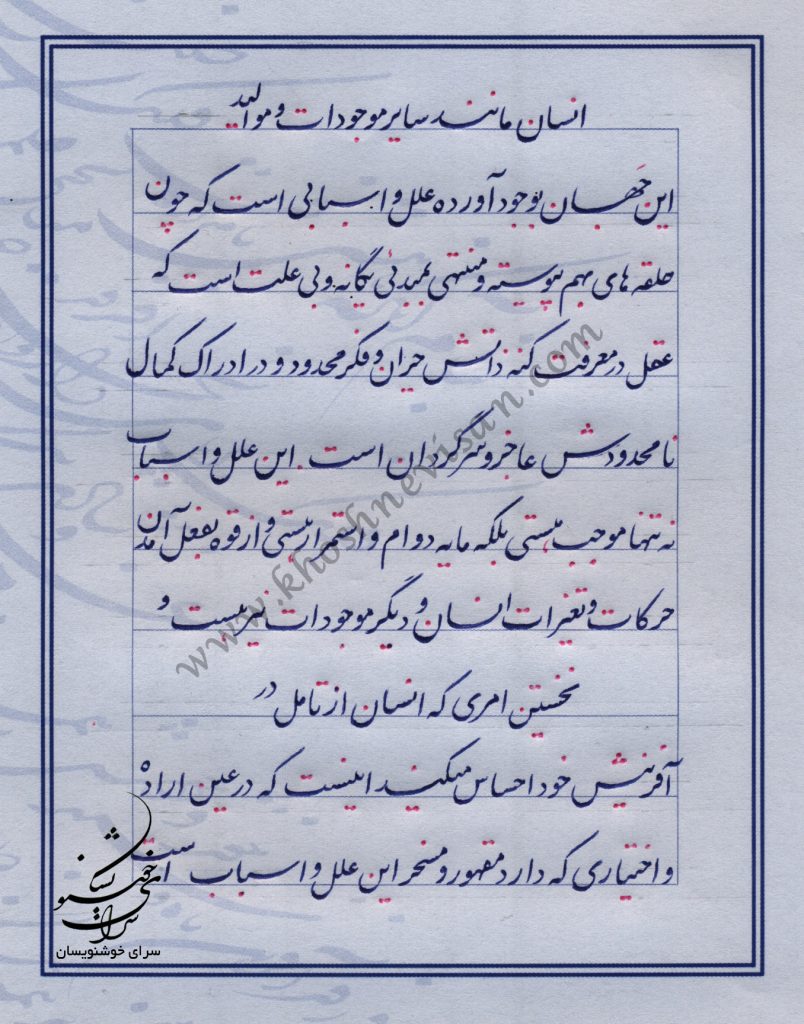 انسان مانند سایر موجودات و موالید
این جهان بوجود آورده علل و اسبابی است که چون
حلقه های بهم پیوسته و منتهی بمبدئی یگانه و بی علت است که
عقل در معرفت کنه ذاتش حیران و فکر محدود و در ادراک کمال
نامحدودش عاجز و سرگردان است. این علل و اسباب
نه تنها موجب هستی بلکه مایه دوام و استمرار هستی و از قوه بفعل آمدن
حرکات و تغییرات انسان و دیگر موجودات نیز هست و
نخستین امری که انسان از تامل در
آفرینش خود احساس میکند اینست که در عین اراده
و اختیاری که دارد مقهور و مسخر این علل و اسباب است
www.khoshnevisan.com
سرای خوشنویسان
سرای خوشنویسان